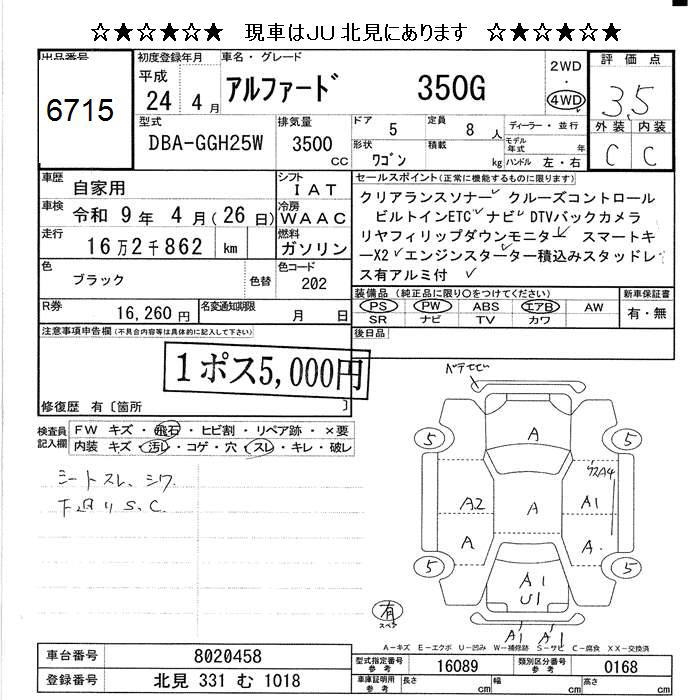 ☆★☆★☆★ 現車はJU北見にあります ☆★☆★☆★
出品番号
6715
初度登録年月
平成
24 年 4 月
車名・グレード
アルファード 350G
2WD
・
4WD
評価点
3.5
外装 内装
C C
型式
DBA-GGH25W
排気量
3500
CC
ドア
5
定員
8 人
形状
ワゴン
積載
kg
ディーラー・並行
モデル年式 年
ハンドル 左・右
車歴
自家用
シフト
IAT
車検
令和 9 年 4 月(26 日)
冷房
WAAC
走行
16万2千862 km
燃料
ガソリン
色
ブラック
色替
色コード
202
R券
16,260 円
名変通知期限
月 日
セールスポイント(正常に機能するものに限ります)
クリアランスソナー クルーズコントロール
ビルトインETC ナビ DTVバックカメラ
リヤフィリップダウンモニター スマートキ
ーX2 エンジンスターター積込みスタッドレ
ス有アルミ付
装備品(純正品に限り○をつけてください)
PS PW ABS エアB AW
SR ナビ TV カワ
新車保証書
有・無
後日品
注意事項申告欄(不具合内容等は具体的に記入して下さい)
1ポス5,000円
修復歴 有〔箇所 〕
検査員記入欄
FW キズ・飛石・ヒビ割・リペア跡・×要
内装 キズ・汚レ・コゲ・穴・スレ・キレ・破レ
シートスレ、シワ
下廻りS.C.
5
A
5
A2
A
A1
A
A
5
A1
U1
5
A1
A1
有
スペア
A-キズ E-エクボ U-凹み W-補修跡 S-サビ C-腐食 XX-交換済
車台番号
8020458
登録番号
北見 331 む 1018
型式指定番号
参考
16089
類別区分番号
参考
0168
車庫証明用
参考
長さ
cm
幅
cm
高さ
cm